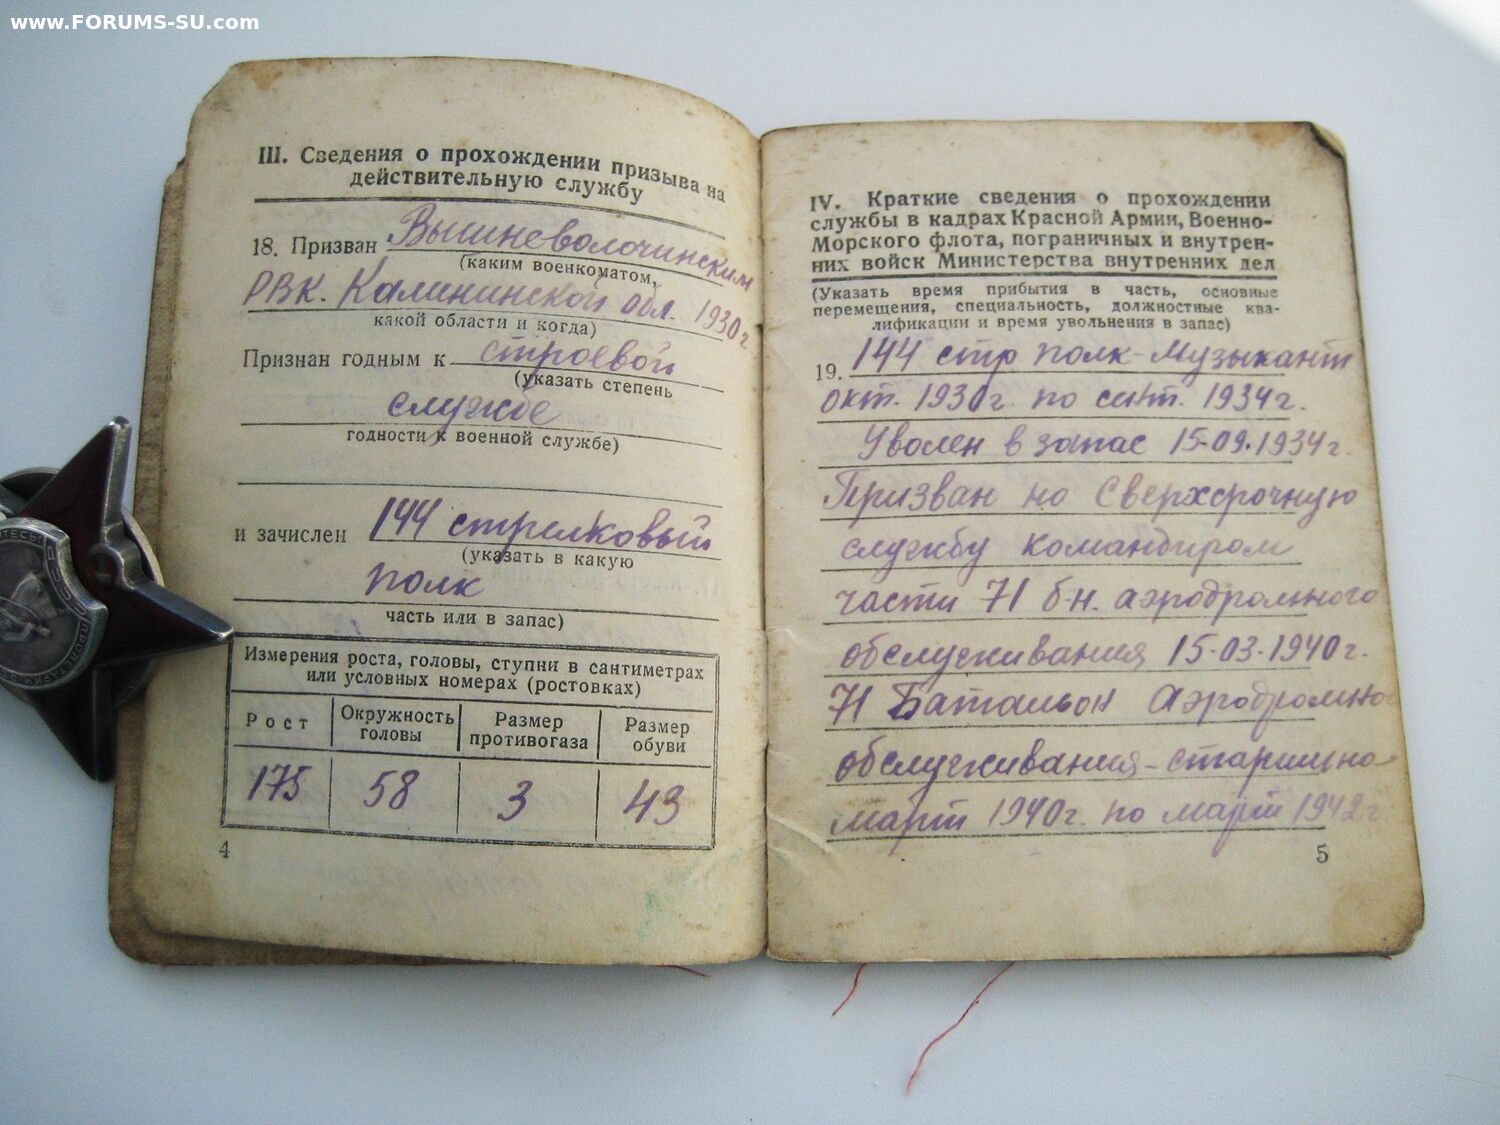 www.FORUMS-SU.com
III. Сведения о прохождении призыва на
действительную службу
18. Призван Вышневолочинским
(каким военкоматом,
РВК. Калининской обл. 1930 г
какой области и когда)
Признан годным к строевой
(указать степень
службе
годности к военной службе)
и зачислен 144 стрелковый
(указать в какую
полк
часть или в запас)
Измерения роста, головы, ступни в сантиметрах
или условных номерах (ростовках)
Рост Окружность головы Размер противогаза Размер обуви
175 58 3 43
4
IV. Краткие сведения о прохождении
службы в кадрах Красной Армии, Военно-
Морского флота, пограничных и внутрен-
них войск Министерства внутренних дел
(Указать время прибытия в часть, основные
перемещения, специальность, должностные ква-
лификации и время увольнения в запас)
19. 144 стр полк - Музыкант
окт. 1930 г. по сент. 1934 г.
Уволен в запас 15-09.1934 г.
Призван на Сверхсрочную
службу командиром
части 71 б-н. аэродромного
обслуживания 15-03-1940 г.
71 Батальон Аэродромного
обслуживания - старшина
март 1940 г. по март 1942 г
5